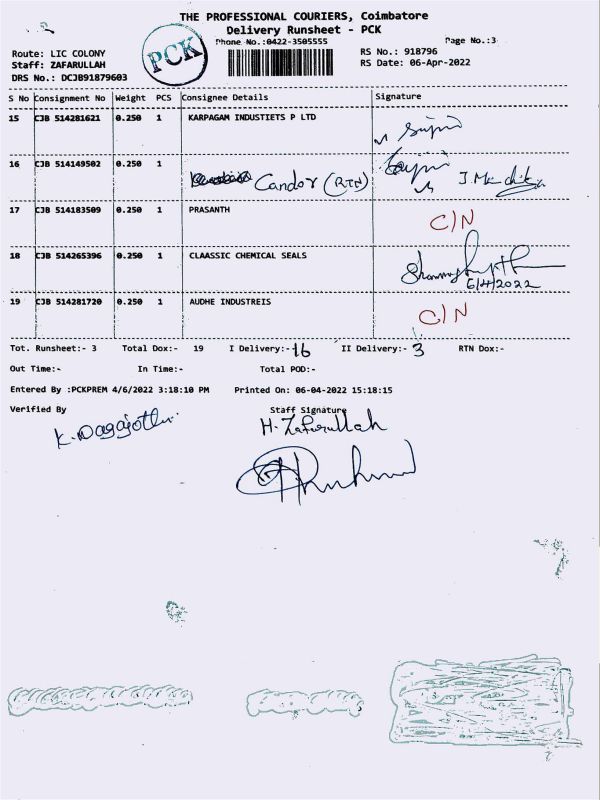 THE PROFESSIONAL COURIERS, Coimbatore
Delivery Runsheet - PCK
Phone No.:0422-3505555
Page No.:3
Route: LIC COLONY
Staff: ZAFARULLAH
DRS No.: DCJB91879603
PCK
RS No.: 918796
RS Date: 06-Apr-2022
S No Consignment No Weight PCS Consignee Details Signature
15 CJB 514281621 0.250 1 KARPAGAM INDUSTIETS P LTD
16 CJB 514149502 0.250 1 Candor (RTN)
17 CJB 514183509 0.250 1 PRASANTH C/N
18 CJB 514265396 0.250 1 CLAASSIC CHEMICAL SEALS
6/4/2022
19 CJB 514281720 0.250 1 AUDHE INDUSTREIS C/N
Tot. Runsheet:- 3 Total Dox:- 19 I Delivery:- 16 II Delivery:- 3 RTN Dox:-
Out Time:- In Time:- Total POD:-
Entered By :PCKPREM 4/6/2022 3:18:10 PM Printed On: 06-04-2022 15:18:15
Verified By Staff Signature
H. Zafarullah